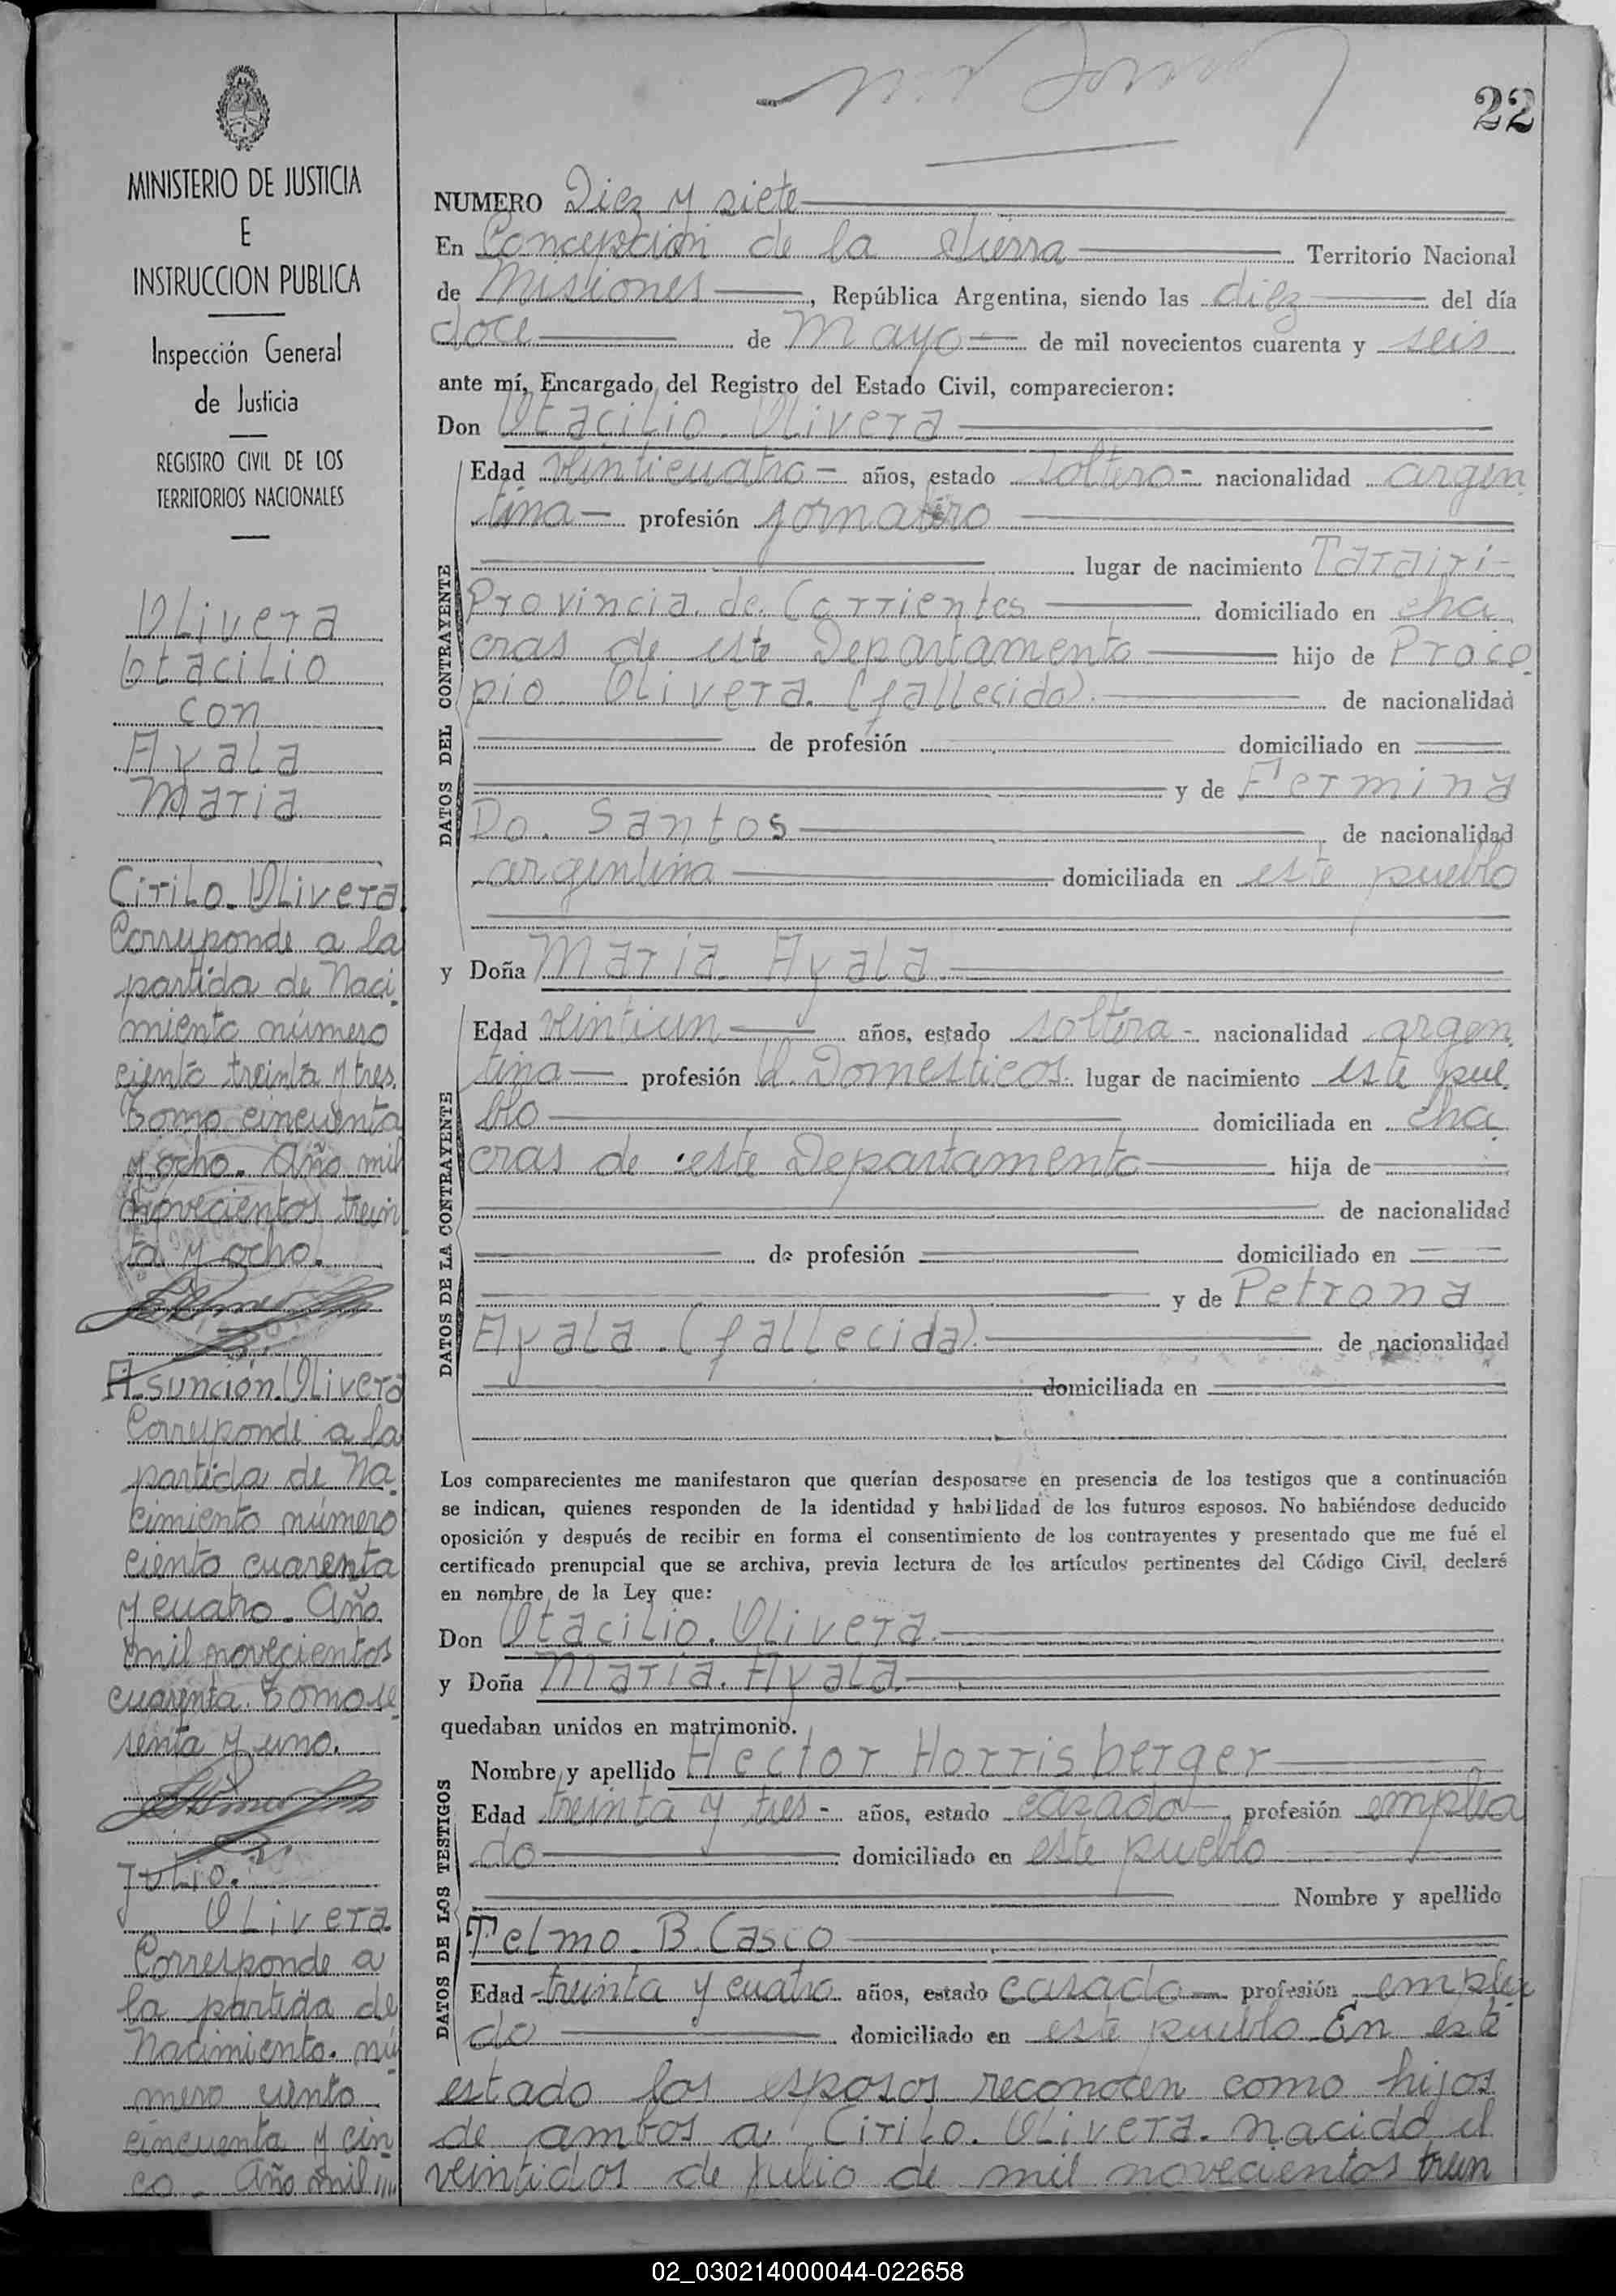 22
MINISTERIO DE JUSTICIA
E
INSTRUCCION PUBLICA
Inspección General
de Justicia
REGISTRO CIVIL DE LOS
TERRITORIOS NACIONALES
Olivera
Otacilio
con
Ayala
Maria
Cirilo. Olivera.
Corresponde a la
partida de Naci
miento número
ciento treinta y tres.
Tomo cincuenta
y ocho. Año mil
novecientos trein
ta y ocho.
Asunción. Olivera
Corresponde a la
partida de Na
cimiento número
ciento cuarenta
y cuatro. Año
mil novecientos
cuarenta. Tomo se
senta y uno.
Julio.
Olivera
Corresponde a
la partida de
Nacimiento. nú
mero ciento
cincuenta y cin
co. Año mil
NUMERO Diez y siete
En Concepción de la Sierra Territorio Nacional
de Misiones, República Argentina, siendo las diez del día
doce de Mayo de mil novecientos cuarenta y seis
ante mí, Encargado del Registro del Estado Civil, comparecieron:
Don Otacilio. Olivera
DATOS DEL CONTRAYENTE
Edad veinticuatro años, estado soltero nacionalidad argen
tina profesión jornalero
lugar de nacimiento Tarairi
Provincia de Corrientes domiciliado en cha
cras de este Departamento hijo de Proco
pio Olivera. (fallecido). de nacionalidad
de profesión domiciliado en
y de Fermina
Do. Santos de nacionalidad
argentina domiciliada en este pueblo
y Doña Maria Ayala
DATOS DE LA CONTRAYENTE
Edad veintiun años, estado soltera nacionalidad argen
tina profesión Q. Domesticos. lugar de nacimiento este pue
blo domiciliada en cha
cras de este Departamento hija de
de nacionalidad
de profesión domiciliado en
y de Petrona
Ayala. (fallecida). de nacionalidad
domiciliada en
Los comparecientes me manifestaron que querían desposarse en presencia de los testigos que a continuación
se indican, quienes responden de la identidad y habilidad de los futuros esposos. No habiéndose deducido
oposición y después de recibir en forma el consentimiento de los contrayentes y presentado que me fué el
certificado prenupcial que se archiva, previa lectura de los artículos pertinentes del Código Civil, declaré
en nombre de la Ley que:
Don Otacilio. Olivera.
y Doña Maria. Ayala
quedaban unidos en matrimonio.
DATOS DE LOS TESTIGOS
Nombre y apellido Hector Horrisberger
Edad treinta y tres años, estado casado profesión emplea
do domiciliado en este pueblo
Nombre y apellido
Telmo. B. Casco
Edad treinta y cuatro años, estado casado profesión emplea
do domiciliado en este pueblo En este
estado los esposos reconocen como hijos
de ambos a: Cirilo. Olivera. nacido el
veintidos de julio de mil novecientos trein
02_030214000044-022658